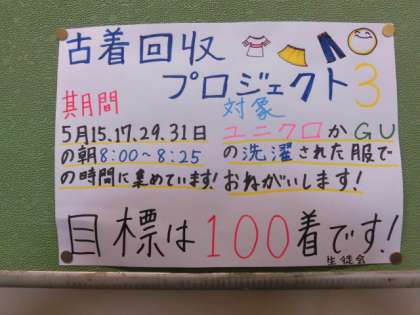 古着回収
プロジェクト3
其月間
5月15.17.29.31日
の朝8:00~8:25
の時間に集めています!
対象
ユニクロかGU
の洗濯された服で
おねがいします!
目標は100着です!
生徒会